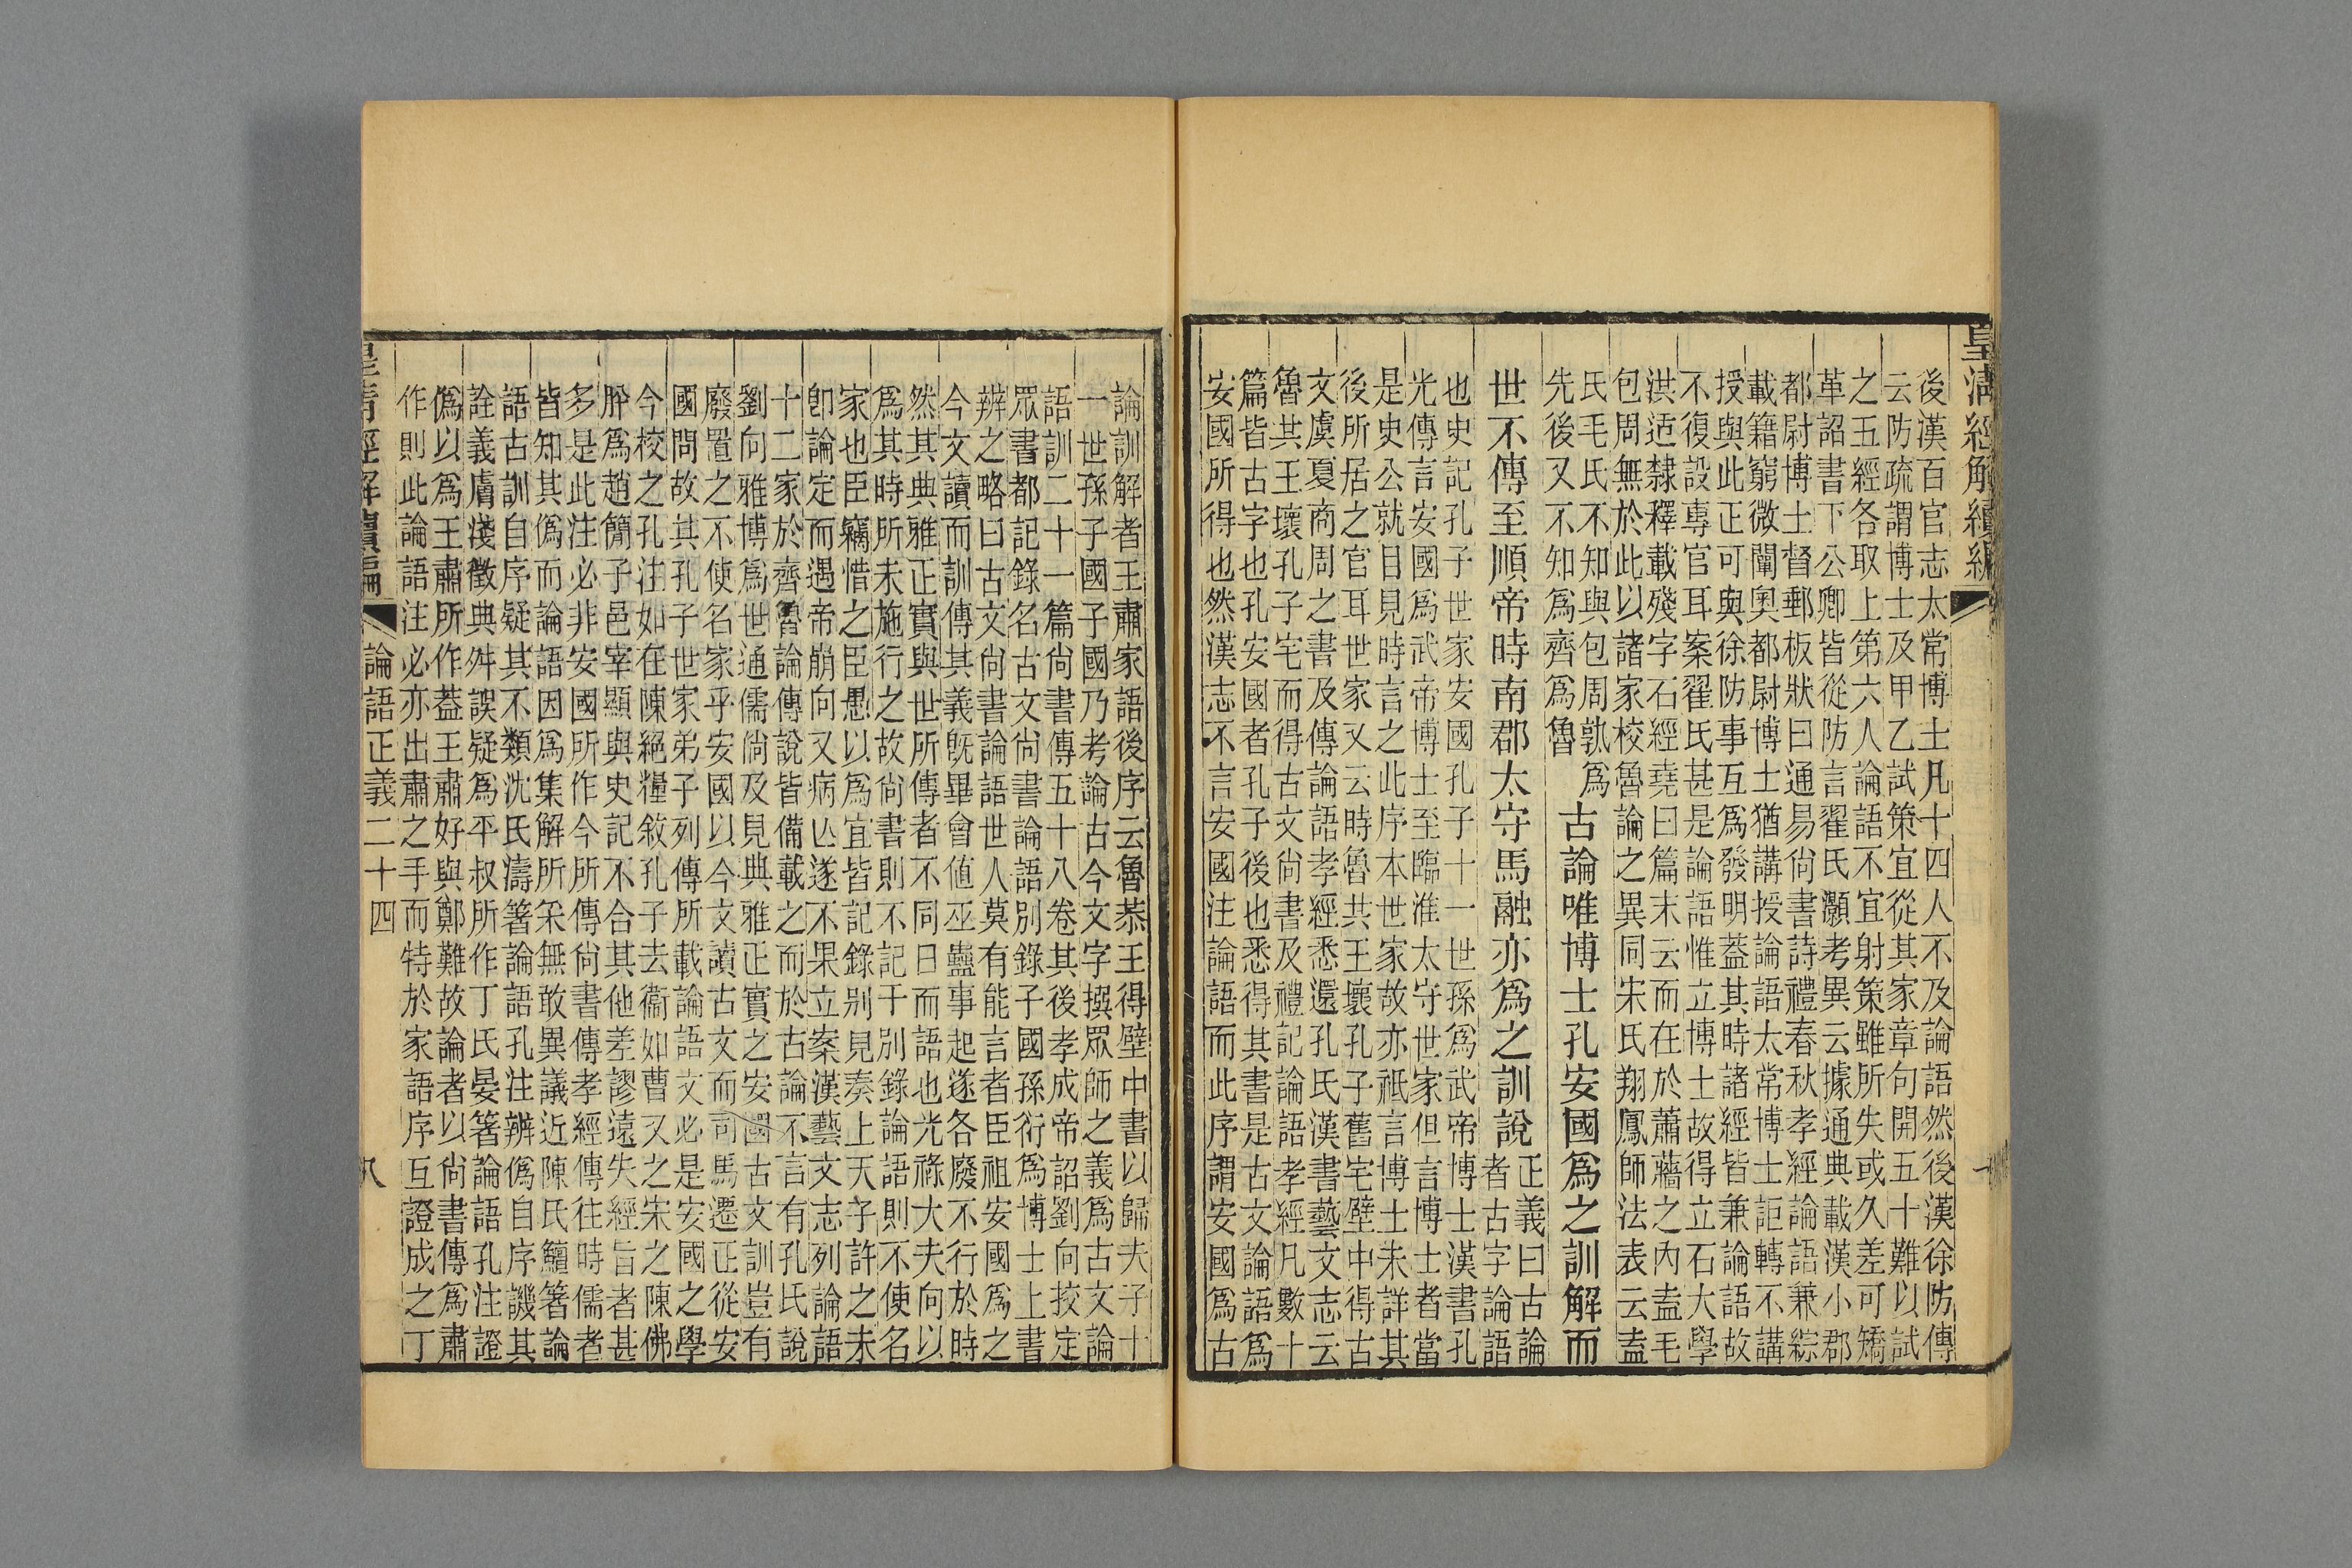 皇清經解續編
後漢百官志太常博士凡十四人不及論語然後漢徐防傳
云防疏謂博士及甲乙試策宜從其家章句開五十難以試
之五經各取上第六人論語不宜射策雖所失或久差可矯
革詔書下公卿皆從防言翟氏灝考異云據通典載漢小郡
都尉博士督郵板狀曰通易尙書詩禮春秋孝經論語兼綜
載籍窮微闡奧都尉博士猶講授論語太常博士詎轉不講
授與此正可與徐防事互爲發明葢其時諸經皆兼論語故
不復設專官耳案翟氏甚是論語惟立博士故得立石大學
洪适隸釋載殘字石經堯曰篇末云而在於蕭牆之內盍毛
包周無於此以諸家校魯論之異同宋氏翔鳳師法表云盍
氏毛氏不知與包周孰爲
先後又不知爲齊爲魯
古論唯博士孔安國爲之訓解而
世不傳至順帝時南郡太守馬融亦爲之訓說
正義曰古論
者古字論語
也史記孔子世家安國孔子十一世孫爲武帝博士漢書孔
光傳言安國爲武帝博士至臨淮太守世家但言博士者當
是史公就目見時言之此序本世家故亦祇言博士未詳其
後所居之官耳世家又云時魯共王壞孔子舊宅壁中得古
文虞夏商周之書及傳論語孝經悉還孔氏漢書藝文志云
魯其王壞孔子宅而得古文尙書及禮記論語孝經凡數十
篇皆古字也孔安國者孔子後也悉得其書是古文論語爲
安國所得也然漢志不言安國注論語而此序謂安國爲古
論訓解者王肅家語後序云魯恭王得壁中書以歸夫子十
一世孫子國子國乃考論古今文字撰眾師之義爲古文論
語訓二十一篇尙書傳五十八卷其後孝成帝詔劉向挍定
眾書都記錄名古文尙書論語別錄子國孫衍爲博士上書
辨之略曰古文尙書論語世人莫有能言者臣祖安國爲之
今文讀而訓傳其義旣畢會値巫蠱事起遂各廢不行於時
然其典雅正實與世所傳者不同日而語也光祿大夫向以
爲其時所未施行之故尙書則不記于別錄論語則不使名
家也臣竊惜之臣愚以爲宜皆記錄別見奏上天子許之未
卽論定而遇帝崩向又病亾遂不果立案漢藝文志列論語
十二家於齊魯論傳說皆備載之而於古論不言有孔氏說
劉向雅博爲世通儒倘及見典雅正實之安國古文訓豈有
廢置之不使名家乎安國以今文讀古文而司馬遷正從安
國問故其孔子世家弟子列傳所載論語文必是安國之學
今校之孔注如在陳絕糧敘孔子去衞如曹又之宋之陳佛
肸爲趙簡子邑宰顯與史記不合其他差謬遠失經旨者甚
多是此注必非安國所作今所傳尙書傳孝經傳往時儒者
皆知其僞而論語因爲集解所采無敢異議近陳氏鱣箸論
語古訓自序疑其不類沈氏濤箸論語孔注辨僞自序譏其
詮義膚淺徵典舛誤疑爲平叔所作丁氏晏箸論語孔注證
僞以爲王肅所作葢王肅好與鄭難故論者以尙書傳爲肅
作則此論語注必亦出肅之手而特於家語序互證成之丁
皇清經解續編
論語正義二十四